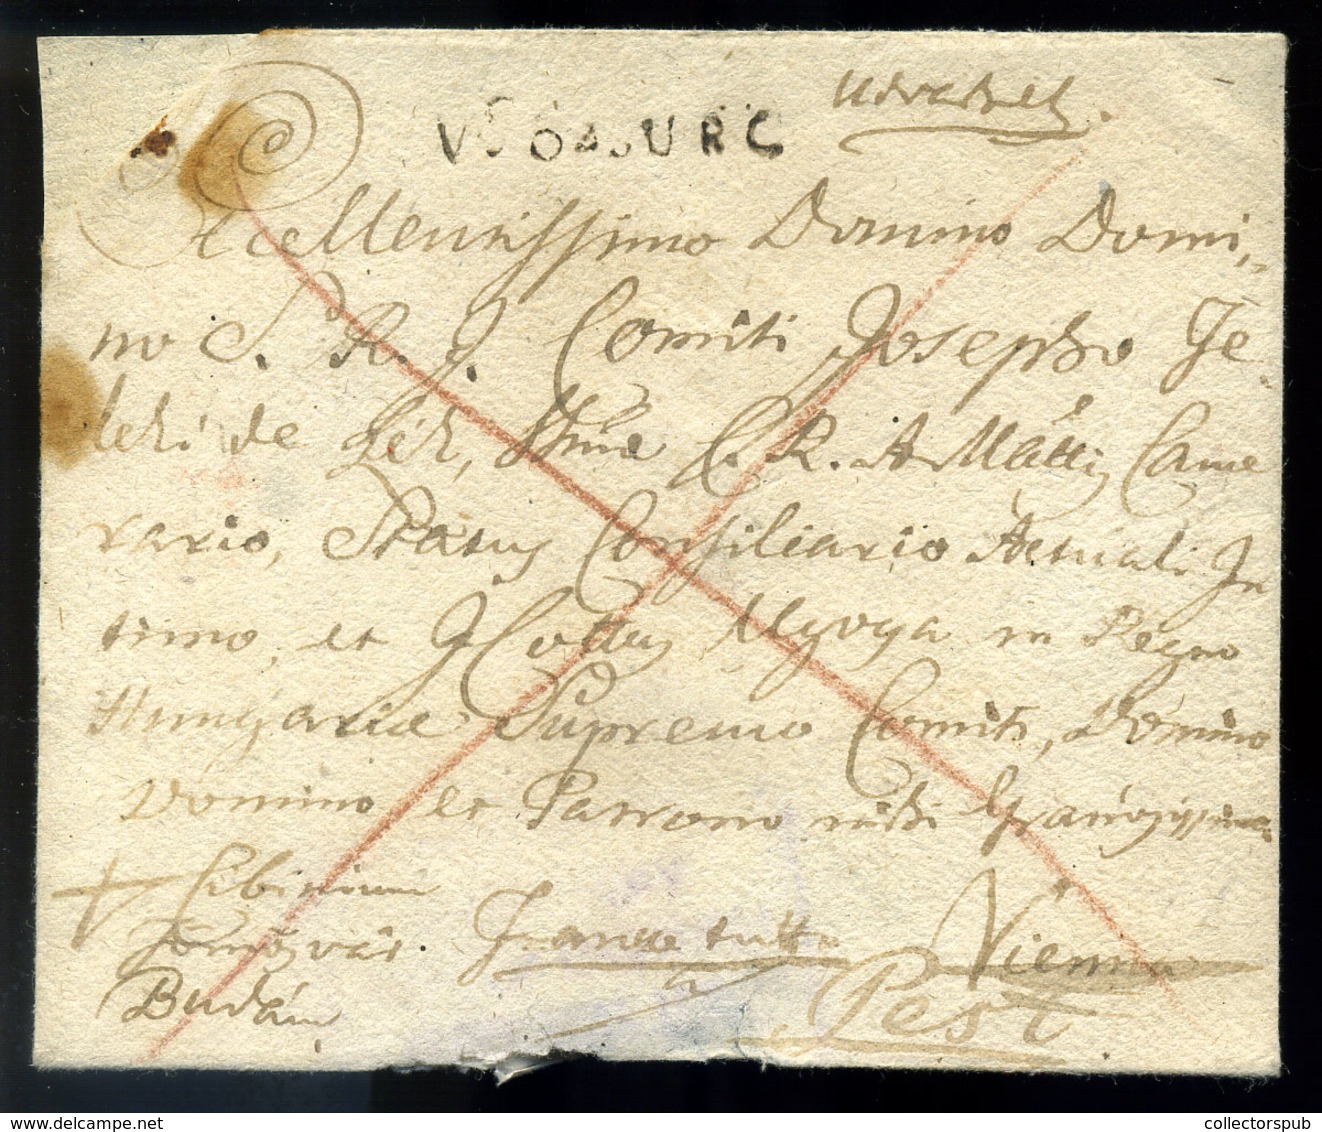 Udvarhely.
V. SOABURG
Excellentissimo Domino Domi„
no S. R. I. Comiti Josepho Te„
leki de Szék, Suae C. R. A. Mattis Came
rario, Status Consiliario Actuali In
timo, et I. Cottus Ugocsa in Regno
Hungariae Supremo Comiti, Domino
Domino et Patrono mihi Gratiosissimo
Cibinium
Temesvár.
Budám
Franco tutto
a
Vienna
Pest
collectorspub